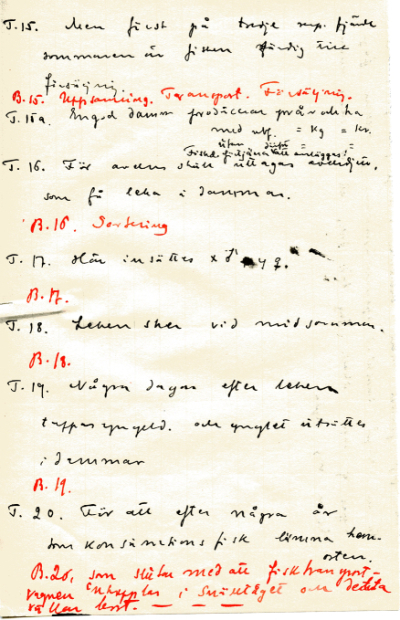 T.15. Men först på tredje resp. fjärde
sommaren är fisken färdig till
försäljning.
B.15. Uppsamling. Transport. Försäljning.
T.15a. En god damm producerar pr år o ha
med utf. = Kg = Kr.
utan =
T.16. För avelns skull uttagas avelsdjur,
som få leka i dammar.
B.16. Sortering
T.17. Här insättes
B.17.
T.18. Leken sker vid midsommar.
B.18.
T.19. Några dagar efter leken
tappas och ynglet utsättes
i dammar
B.19.
T.20. För att efter några år
som konsumtionsfisk lämna
orten.
B.20, som slutar med att fisktransport-
vagnen kopplas i snälltåget och
bort.